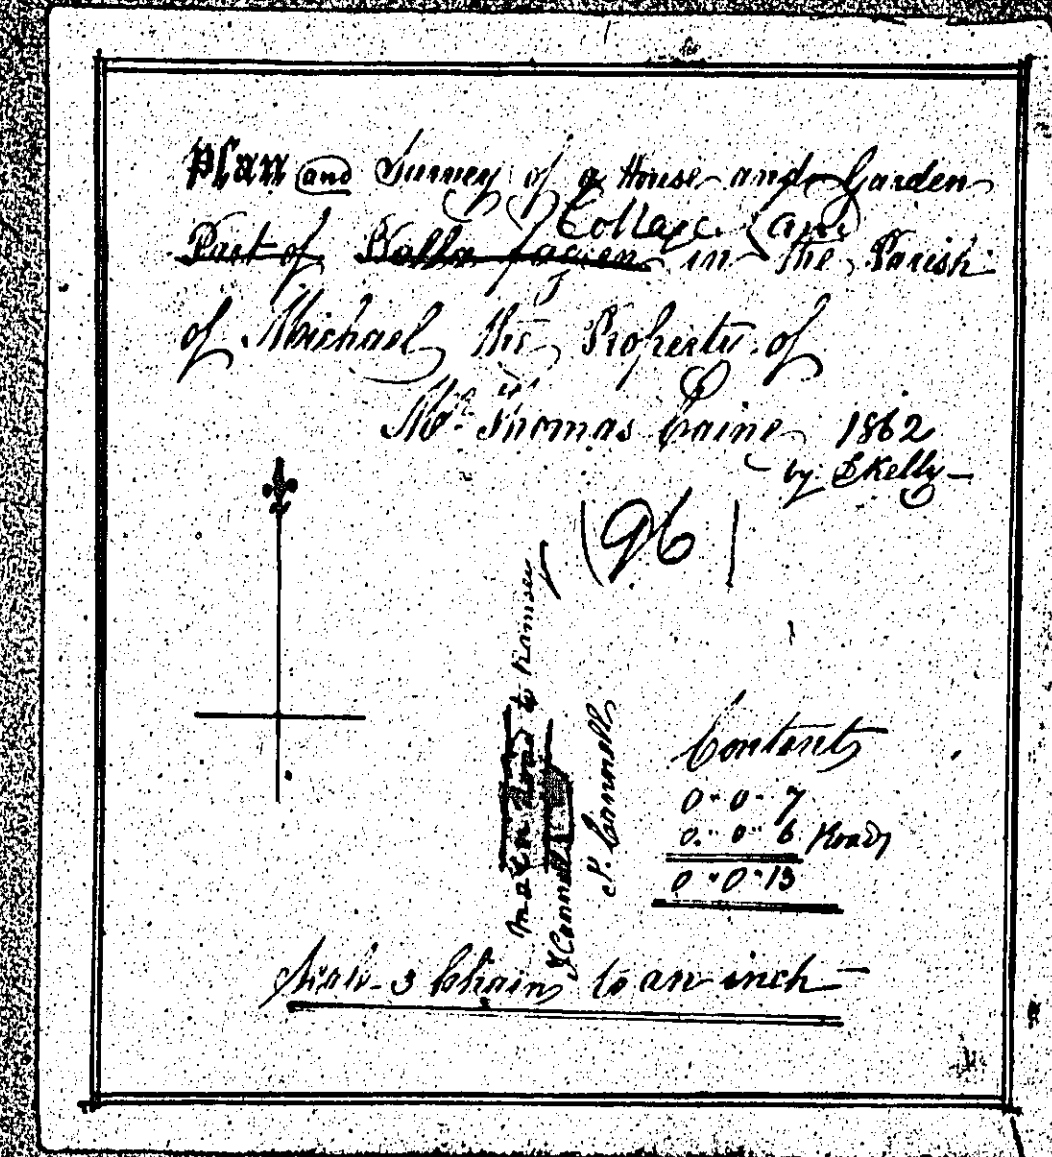 Plan and Survey of a House and Garden
Cottage and
Part of Balla in the Parish
of Michael the Property of
Mr. Thomas Caine 1862
by Kelly
(96)
Main Road to Ramsey
J Cannell
P. Cannell
Contents
0 " 0 " 7
0 " 0 " 6 Road
0 " 0 " 13
Scale 3 Chains to an inch